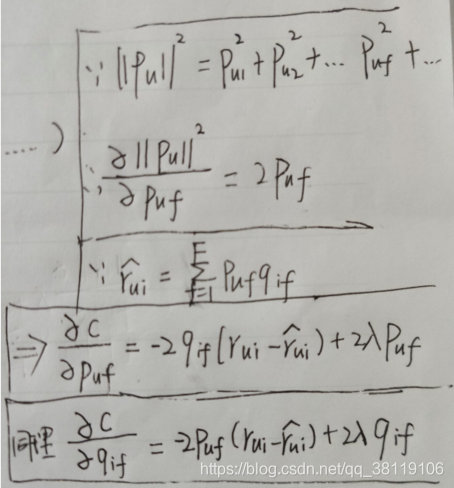 ∵ ||Pu||² = Pu1² + Pu2² + … Puf² + …
…… )
∴ ∂||Pu||² / ∂Puf = 2Puf
∵ r̂ui = Σ_{f=1}^{F} Puf qif
⇒ ∂C/∂Puf = -2qif(rui - r̂ui) + 2λPuf
同理 ∂C/∂qif = -2Puf(rui - r̂ui) + 2λqif
https://blog.csdn.net/qq_38119106